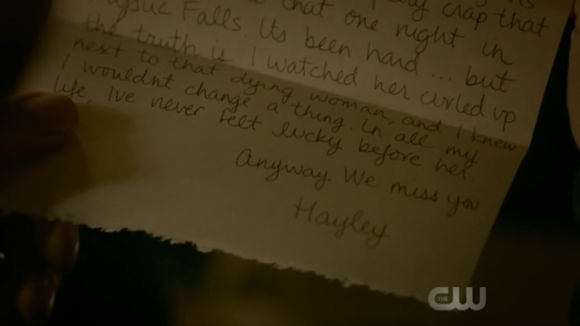 crap that
that one night in
Falls. Its been hard... but
the truth is I watched her curled up
next to that dying woman, and I knew
I wouldnt change a thing. In all my
life, Ive never felt lucky before her.
Anyway We miss you
Hayley
THE CW